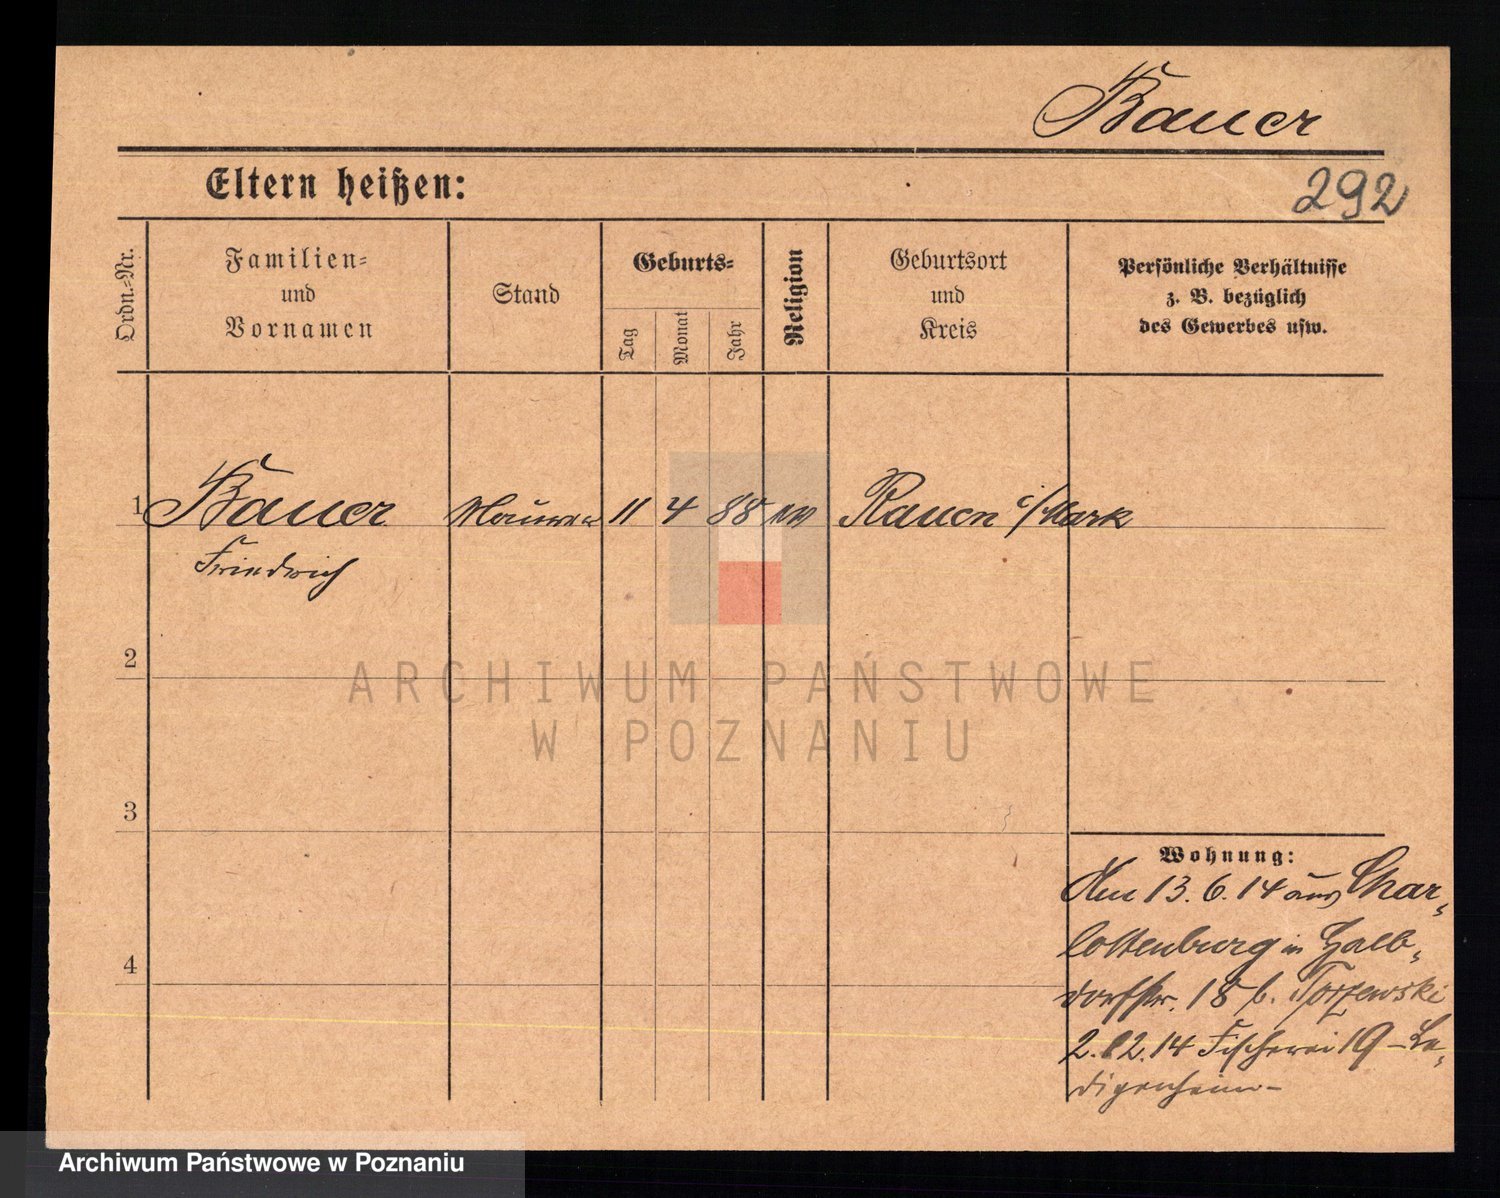 Bauer
Eltern heißen:
292
Ordn.-Nr.
Familien-
und
Vornamen
Stand
Geburts-
Tag
Monat
Jahr
Religion
Geburtsort
und
Kreis
Persönliche Verhältnisse
z. B. bezüglich
des Gewerbes usw.
1 Bauer Maurer 11 4 88 ev Rauen i/Mark
Friedrich
2
ARCHIWUM PAŃSTWOWE
W POZNANIU
3
Wohnung:
Am 13.6.14 aus Char-
lottenburg in Halb-
4
dorfstr. 18 b. Torzewski
2.12.14 Fischerei 19 - Le-
digenheim -
Archiwum Państwowe w Poznaniu